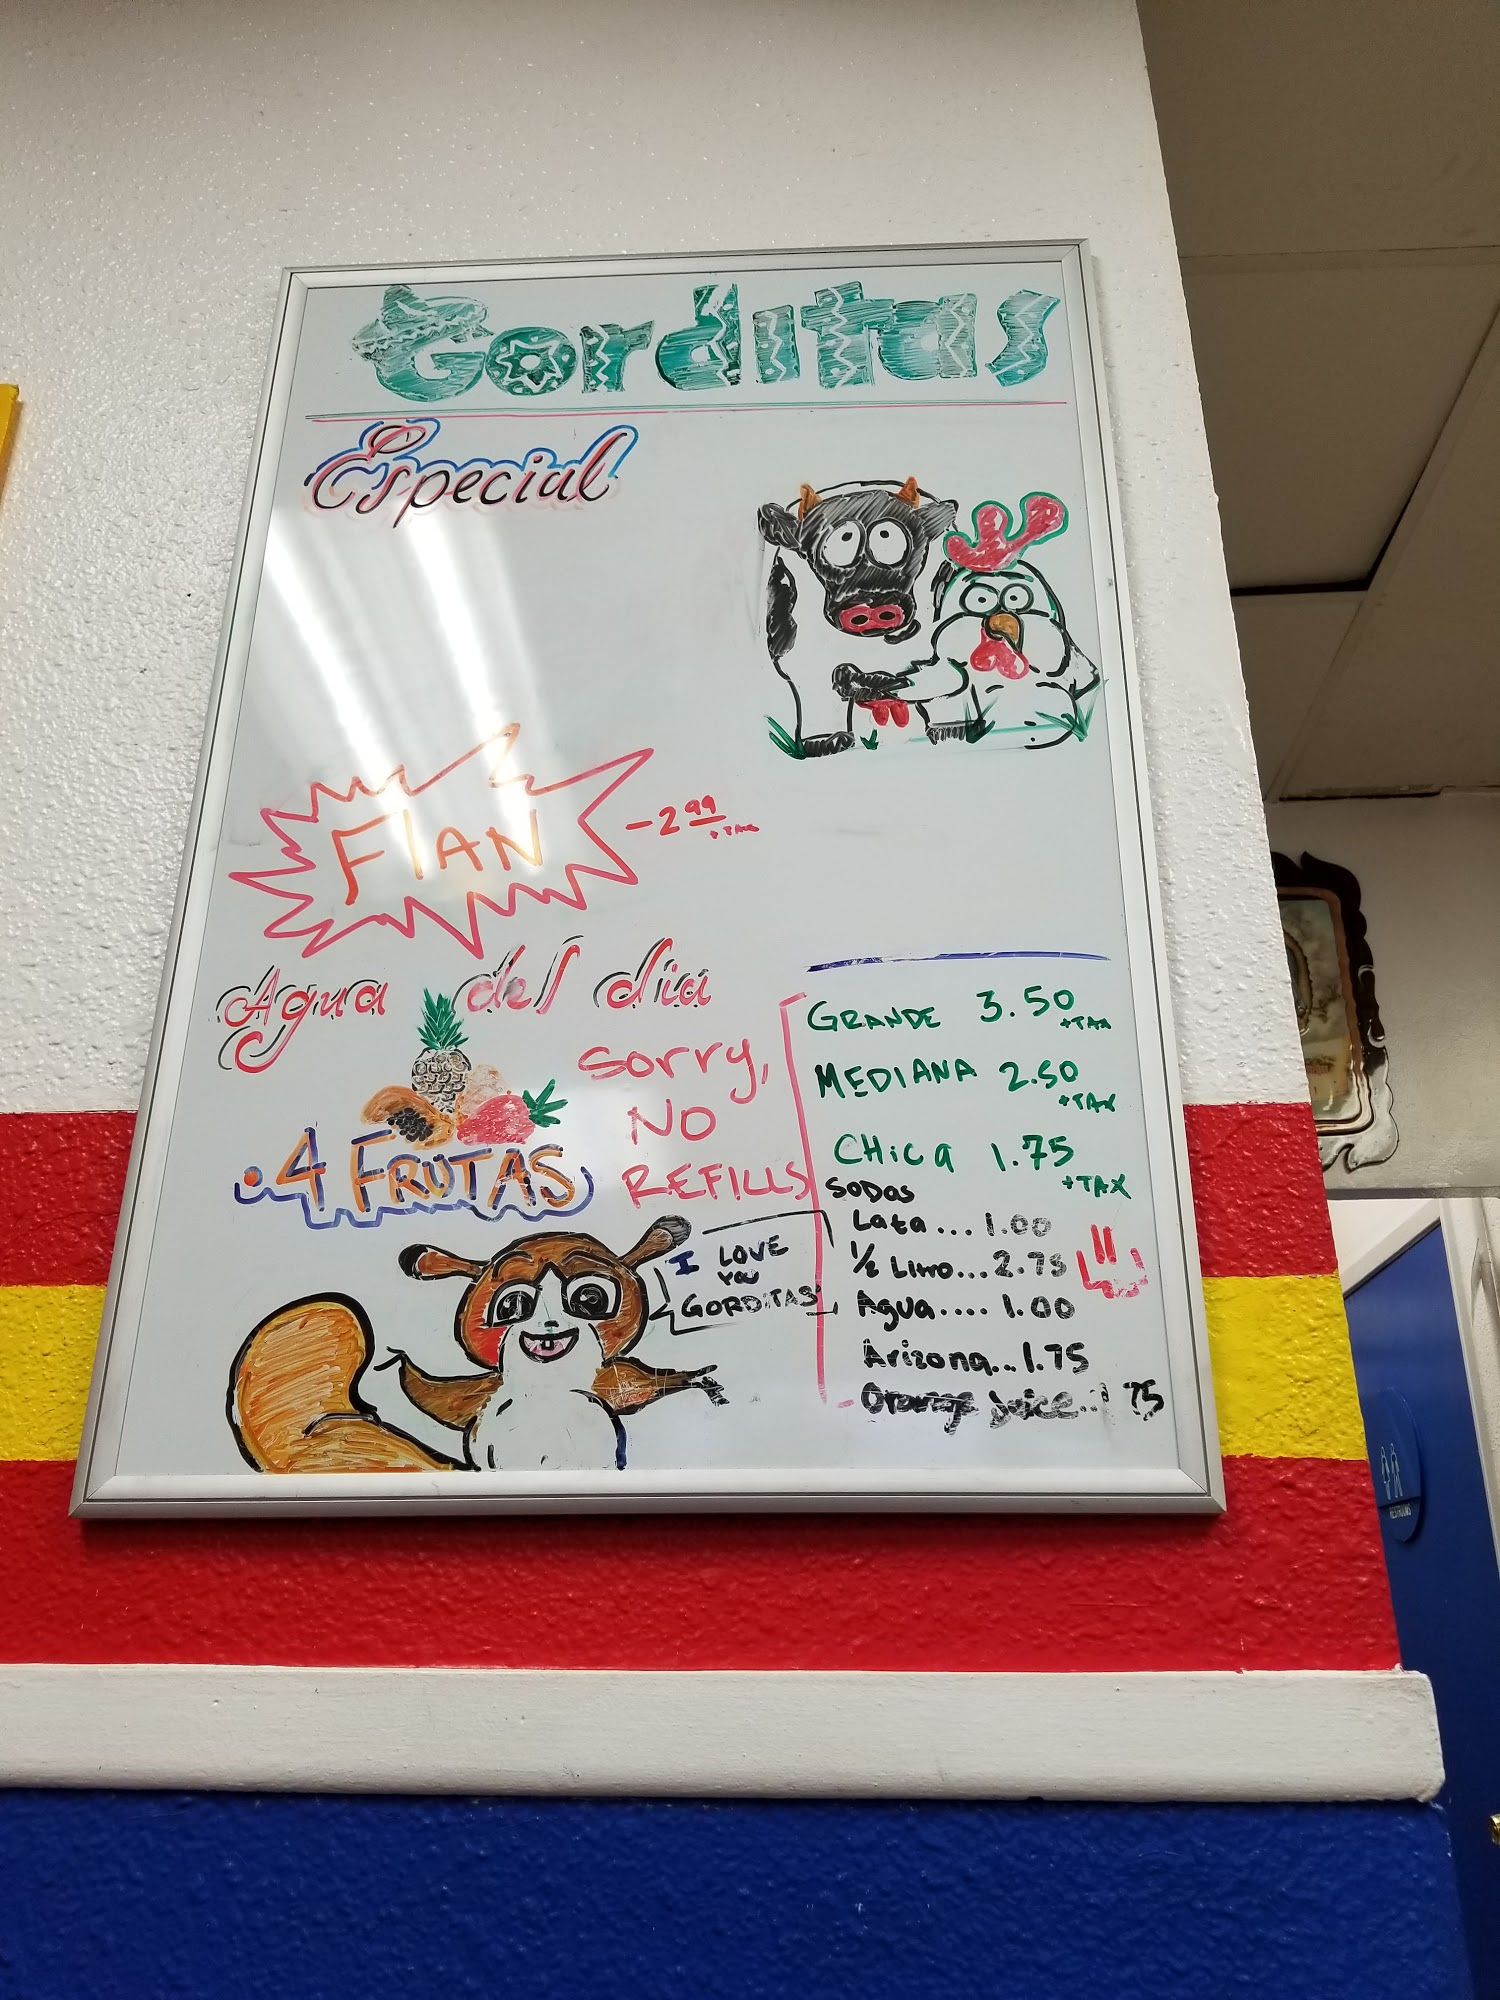 Gorditas
Especial
FlAN - 2 99
+ TAX
Agua del dia
Sorry,
NO
REFILLS
. 4 FRUTAS
I LOVE
YOU
GORDITAS!
GRANDE 3.50
+TAX
MEDIANA 2.50
+TAX
CHICA 1.75
+TAX
SODAS
Lata ... 1.00
1/2 Litro... 2.75
Agua..... 1.00
Arizona... 1.75
Orange Juice..1 75
RESTROOMS